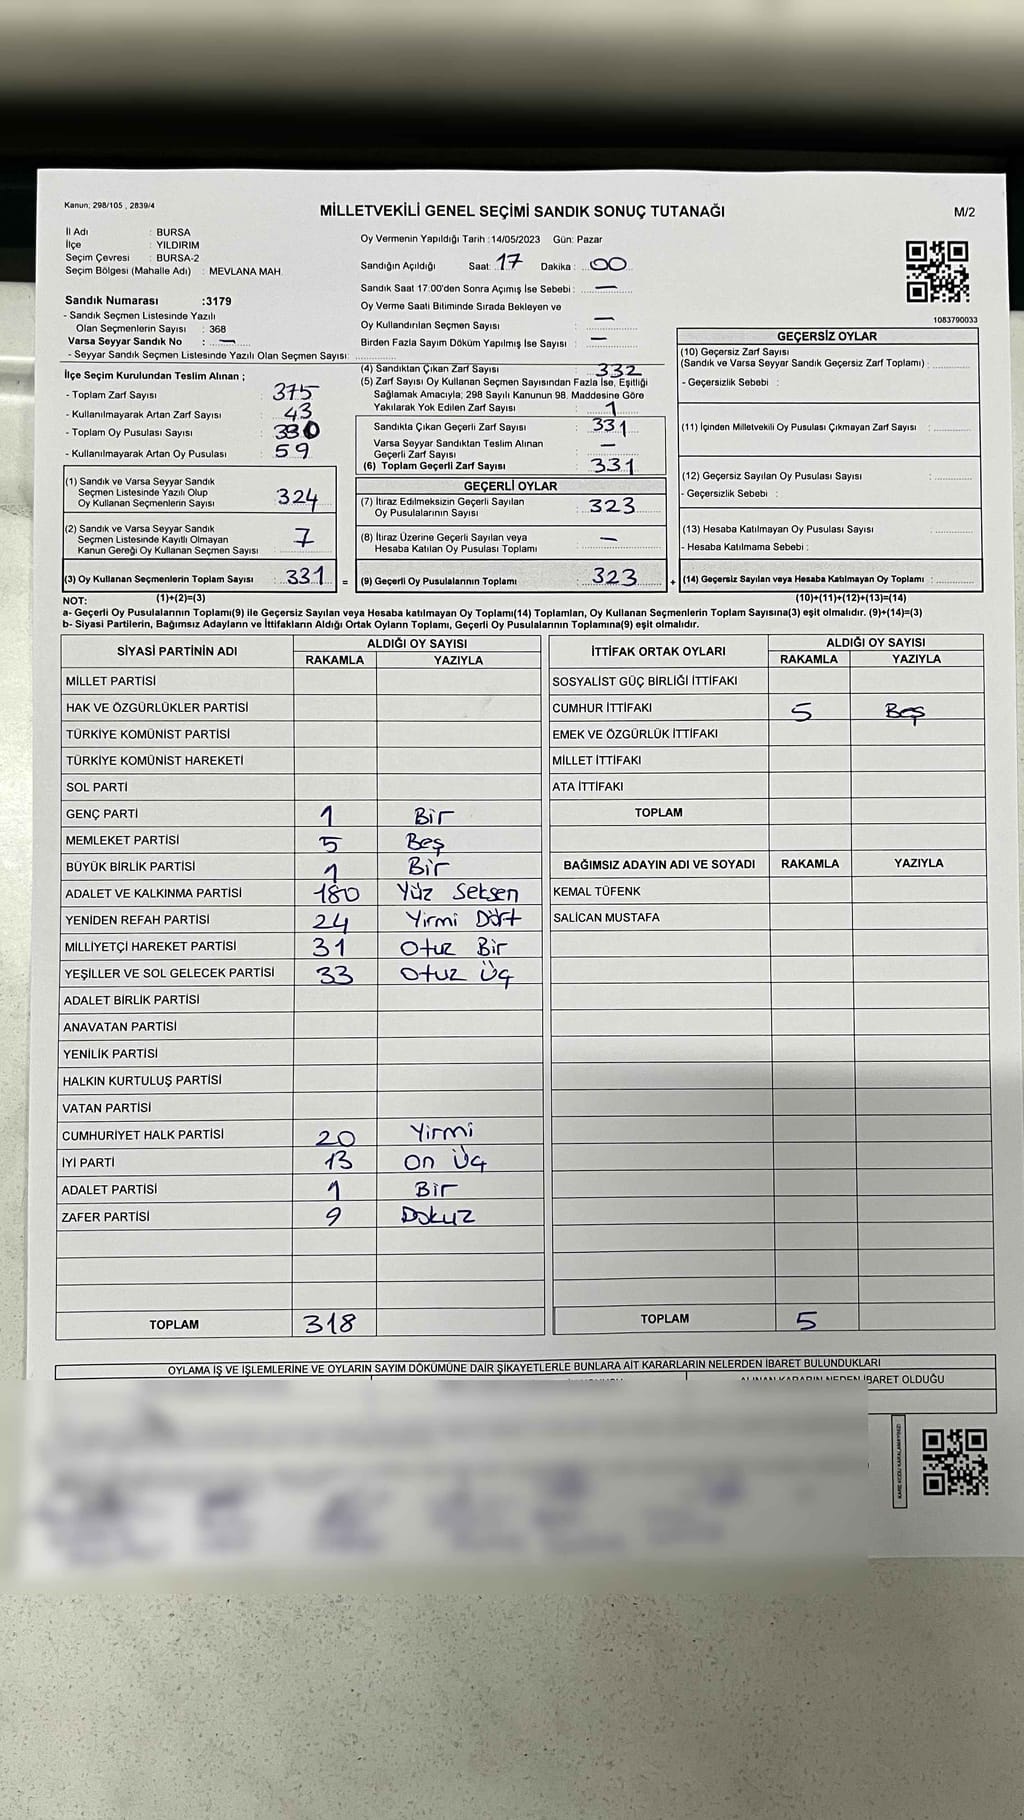 Kanun; 298/105 , 2839/4
MİLLETVEKİLİ GENEL SEÇİMİ SANDIK SONUÇ TUTANAĞI
M/2
İl Adı : BURSA
İlçe : YILDIRIM
Seçim Çevresi : BURSA-2
Seçim Bölgesi (Mahalle Adı) : MEVLANA MAH.
Sandık Numarası :3179
- Sandık Seçmen Listesinde Yazılı
Olan Seçmenlerin Sayısı : 368
Varsa Seyyar Sandık No : —
- Seyyar Sandık Seçmen Listesinde Yazılı Olan Seçmen Sayısı:
Oy Vermenin Yapıldığı Tarih :14/05/2023 Gün: Pazar
Sandığın Açıldığı Saat: 17 Dakika : 00
Sandık Saat 17:00'den Sonra Açımış İse Sebebi : —
Oy Verme Saati Bitiminde Sırada Bekleyen ve
Oy Kullandırılan Seçmen Sayısı : —
Birden Fazla Sayım Döküm Yapılmış İse Sayısı : —
1083790033
İlçe Seçim Kurulundan Teslim Alınan ;
- Toplam Zarf Sayısı : 375
- Kullanılmayarak Artan Zarf Sayısı : 43
- Toplam Oy Pusulası Sayısı : 330
- Kullanılmayarak Artan Oy Pusulası : 59
(1) Sandık ve Varsa Seyyar Sandık
Seçmen Listesinde Yazılı Olup
Oy Kullanan Seçmenlerin Sayısı : 324
(2) Sandık ve Varsa Seyyar Sandık
Seçmen Listesinde Kayıtlı Olmayan
Kanun Gereği Oy Kullanan Seçmen Sayısı : 7
(3) Oy Kullanan Seçmenlerin Toplam Sayısı : 331 =
(1)+(2)=(3)
(4) Sandıktan Çıkan Zarf Sayısı : 332
(5) Zarf Sayısı Oy Kullanan Seçmen Sayısından Fazla İse, Eşitliği
Sağlamak Amacıyla; 298 Sayılı Kanunun 98. Maddesine Göre
Yakılarak Yok Edilen Zarf Sayısı : 1
Sandıkta Çıkan Geçerli Zarf Sayısı : 331
Varsa Seyyar Sandıktan Teslim Alınan
Geçerli Zarf Sayısı : —
(6) Toplam Geçerli Zarf Sayısı : 331
GEÇERLİ OYLAR
(7) İtiraz Edilmeksizin Geçerli Sayılan
Oy Pusulalarının Sayısı : 323
(8) İtiraz Üzerine Geçerli Sayılan veya
Hesaba Katılan Oy Pusulası Toplamı : —
(9) Geçerli Oy Pusulalarının Toplamı : 323 +
GEÇERSİZ OYLAR
(10) Geçersiz Zarf Sayısı
(Sandık ve Varsa Seyyar Sandık Geçersiz Zarf Toplamı) :
- Geçersizlik Sebebi :
(11) İçinden Milletvekili Oy Pusulası Çıkmayan Zarf Sayısı :
(12) Geçersiz Sayılan Oy Pusulası Sayısı :
- Geçersizlik Sebebi :
(13) Hesaba Katılmayan Oy Pusulası Sayısı :
- Hesaba Katılmama Sebebi :
(14) Geçersiz Sayılan veya Hesaba Katılmayan Oy Toplamı :
(10)+(11)+(12)+(13)=(14)
NOT:
a- Geçerli Oy Pusulalarının Toplamı(9) ile Geçersiz Sayılan veya Hesaba katılmayan Oy Toplamı(14) Toplamları, Oy Kullanan Seçmenlerin Toplam Sayısına(3) eşit olmalıdır. (9)+(14)=(3)
b- Siyasi Partilerin, Bağımsız Adayların ve İttifakların Aldığı Ortak Oyların Toplamı, Geçerli Oy Pusulalarının Toplamına(9) eşit olmalıdır.
SİYASİ PARTİNİN ADI ALDIĞI OY SAYISI
RAKAMLA YAZIYLA
MİLLET PARTİSİ
HAK VE ÖZGÜRLÜKLER PARTİSİ
TÜRKİYE KOMÜNİST PARTİSİ
TÜRKİYE KOMÜNİST HAREKETİ
SOL PARTİ
GENÇ PARTİ 1 Bir
MEMLEKET PARTİSİ 5 Beş
BÜYÜK BİRLİK PARTİSİ 1 Bir
ADALET VE KALKINMA PARTİSİ 180 Yüz Seksen
YENİDEN REFAH PARTİSİ 24 Yirmi Dört
MİLLİYETÇİ HAREKET PARTİSİ 31 Otuz Bir
YEŞİLLER VE SOL GELECEK PARTİSİ 33 Otuz Üç
ADALET BİRLİK PARTİSİ
ANAVATAN PARTİSİ
YENİLİK PARTİSİ
HALKIN KURTULUŞ PARTİSİ
VATAN PARTİSİ
CUMHURİYET HALK PARTİSİ 20 Yirmi
İYİ PARTİ 13 On Üç
ADALET PARTİSİ 1 Bir
ZAFER PARTİSİ 9 Dokuz
TOPLAM 318
İTTİFAK ORTAK OYLARI ALDIĞI OY SAYISI
RAKAMLA YAZIYLA
SOSYALİST GÜÇ BİRLİĞİ İTTİFAKI
CUMHUR İTTİFAKI 5 Beş
EMEK VE ÖZGÜRLÜK İTTİFAKI
MİLLET İTTİFAKI
ATA İTTİFAKI
TOPLAM
BAĞIMSIZ ADAYIN ADI VE SOYADI RAKAMLA YAZIYLA
KEMAL TÜFENK
SALİCAN MUSTAFA
TOPLAM 5
OYLAMA İŞ VE İŞLEMLERİNE VE OYLARIN SAYIM DÖKÜMÜNE DAİR ŞİKAYETLERLE BUNLARA AİT KARARLARIN NELERDEN İBARET BULUNDUKLARI
ALINAN KARARIN NEDEN İBARET OLDUĞU